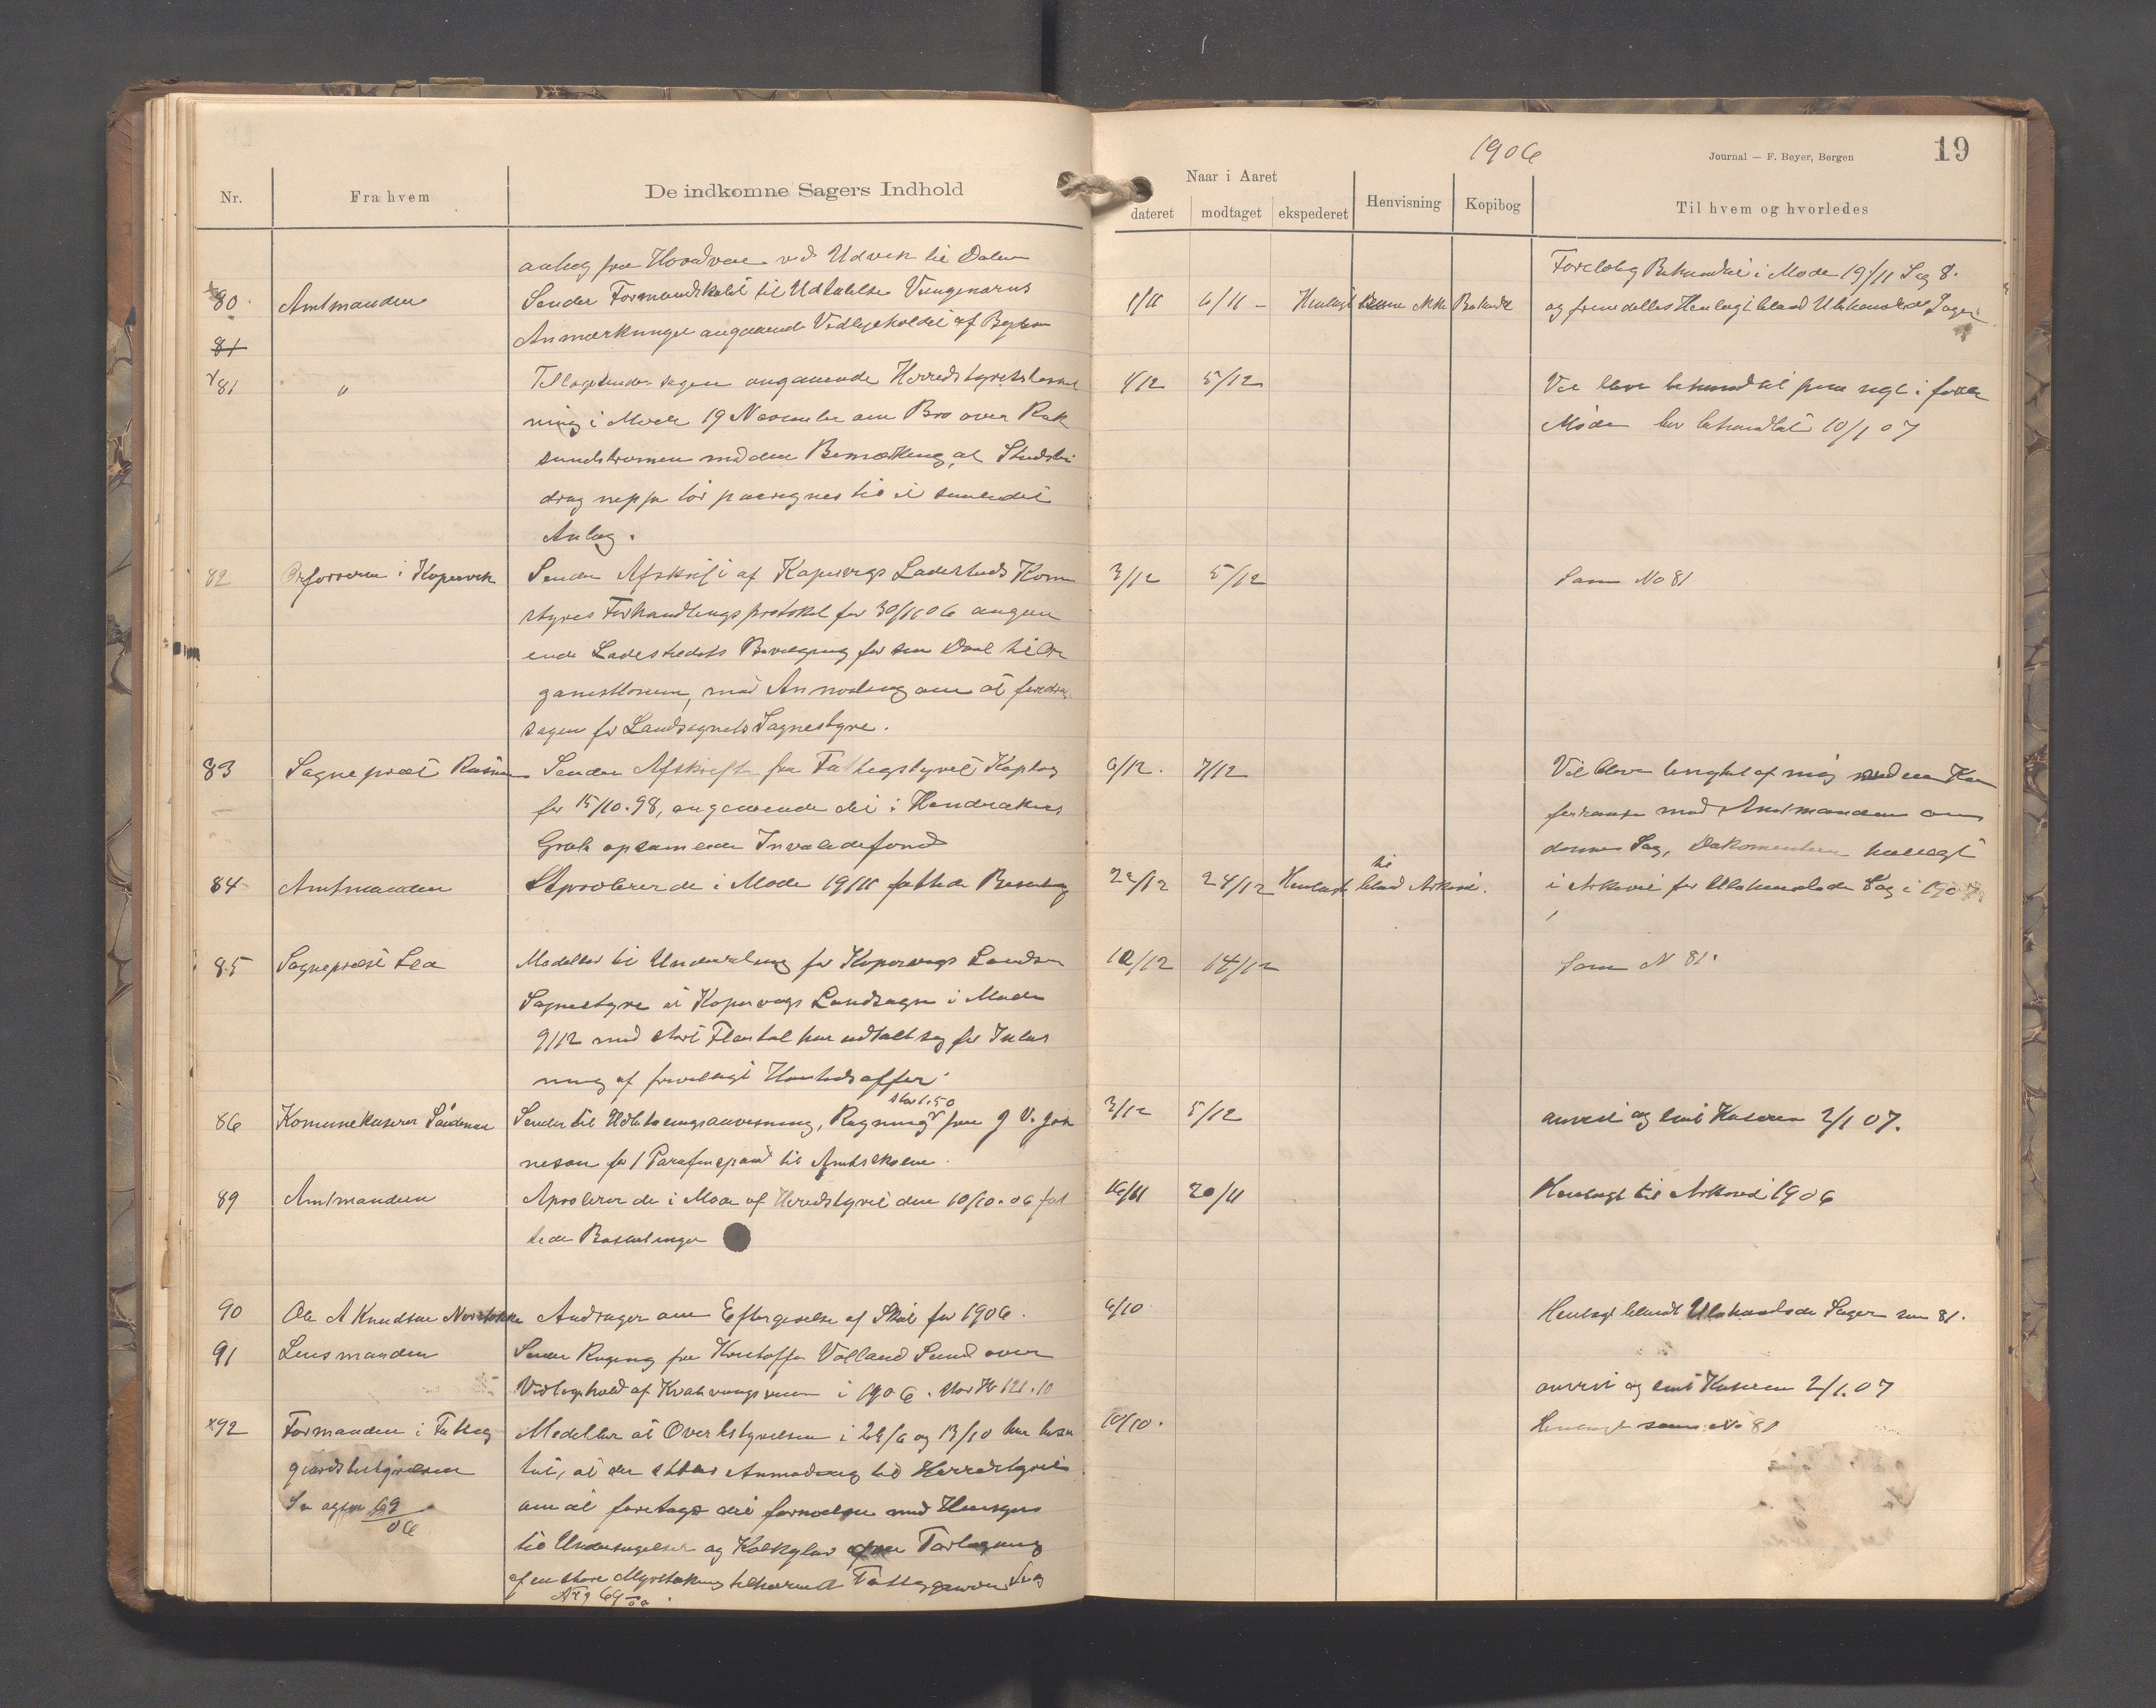 1906
Journal — F. Beyer, Bergen
19
Nr.
Fra hvem
De indkomne Sagers Indhold
Naar i Aaret
dateret
modtaget
ekspederet
Henvisning
Kopibog
Til hvem og hvorledes
anlæg fra Hovedveie ved Udvik til Dalen
Foreløbig Behandlet i Møde 19/11 Sag 8.
80 Amtmanden Sender Formandskabet til Udtalelse Veiingeniørens 1/11 6/11 — Henlagt ikke Behandl og fremdelles Henlagt bland Ubehandlede Sager
81 Anmærkninger angaaende Vedligeholdet af
81 " Tilbagesender sagen angaaende Herredstyretsbeslut 4/12 5/12 Vil blive behandlet paa nyt i første
ning i Møde 19 November om Bro over Rak Møde blev behandlet 10/1 07
sundstrømen med den Bemærkning, at Stadsbi
drag neppe tør paaregnes til et saadet
Anlæg.
82 i Kopervik Sender Afskrift af Kopervigs Ladesteds Kom 3/12 5/12 Som No 81
styres Forhandlingsprotokol for 30/11 06 angaa
ende Ladestedets Bevilgning for sin Deel til Or
ganistlønnen, med Anmodning om at foredra
sagen for Landsognets Sognestyre.
83 Sogneprest Sender Afskrift fra Fattigstyret Kopbog 6/12. 7/12 Vil blive af mig ved en Kon
for 15/10.98, angaaende det i Henderakers feranse med Amtmanden om
Grab opsamlede Invalidefond denne Sag, Dokumenterne henlagt
84 Amtmanden Aprobierer de i Møde 19/11 fattede Beslutning 22/12 24/12 Henlagt til bland Arkivet. i Arkivet for Ubehandlede Sag i 1907
85 Sogneprest Lea Meddeler til Underretning for Kopervigs Landsogn 12/12 14/12 Som N 81.
Sognestyre at Kopervigs Landsogn i Møde
9/12 med stort Flertal har udtalt sig for Inløs
ning af frivilligt Høitidsoffer.
86 Komunekaserer Sender til Udbetalingsanvisning, Regning stor 1.50 fra J V. Joh 3/12 5/12 anvist og sent Kaseren 2/1 07.
nesen for 1 Parafinspand til Amtsskolen.
89 Amtmanden Aprobierer de i Møde af Herredstyret den 10/10.06 fat 16/11 20/11 Henlagt til Arkivet 1906
tede Beslutninger
90 Ole A Knudsen Andrager om Eftergivelse af Skat for 1906. 6/10 Henlagt blandt Ubehandlede Sager som 81.
91 Lensmanden Sender Regning fra Kristoffer Valland Sund over
Vedligehold af veien i 1906. stor Kr 121.10 anvist og sent Kaseren 2/1. 07
92 Formanden i Fattig Meddeler at Overbestyrelsen i 28/6 og 13/10 har beslu 10/10. Henlagt som No 81
gaardsbestyrelsen tet, at der stilles Anmodning til Herredstyret
Se ogsaa 69/06 om at foretage det fornødne med Hensyn
til Undersøgelser og Kalkyler
af en større tilhørende Fattiggaarden
69